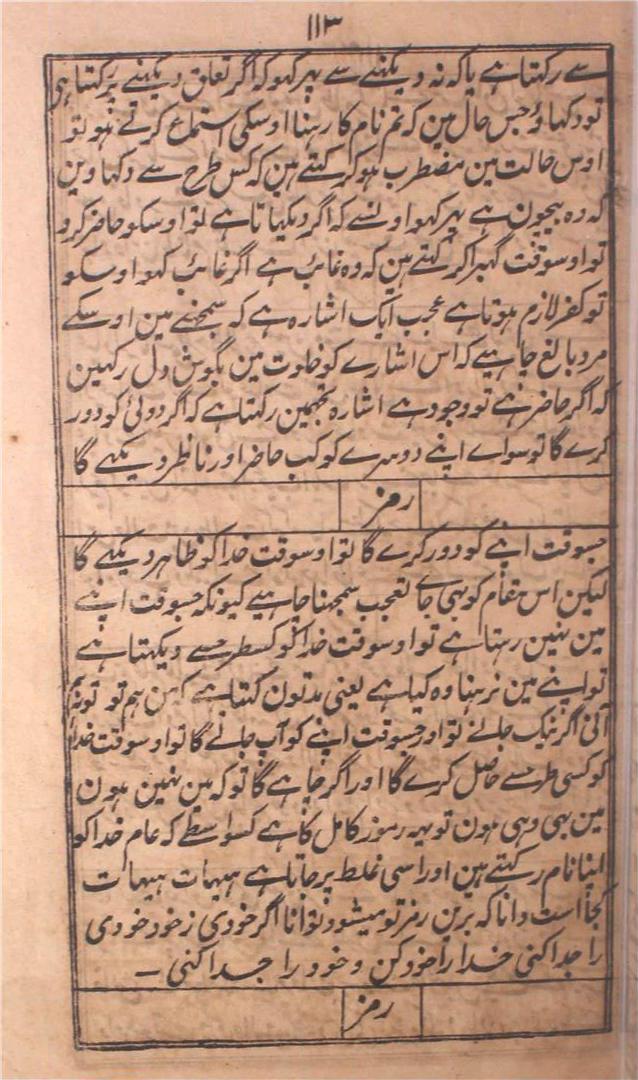 ۱۱۳
سے رکہتا ہے یا کہ نہ دیکہنے سے پہر کہو کہ اگر تعلق دیکہنے پر کہتا ہی
تو دکہاؤ جس حال مین کہ تم نام کا رہنا اوسکی استماع کرتے ہو تو
اوس حالت مین مضطرب ہو کر کہتے ہین کہ کس طرح سے دکہاوین
کہ وہ بیچون ہے پہر کہو اونسے کہ اگر دیکہا تا ہے تو اوسکو حاضر کرو
تو اوسوقت گہبرا کر کہتے ہین کہ وہ غائب ہے اگر غائب کہو اوسکو
تو کفر لازم ہوتا ہے عجب ایک اشارہ ہے کہ سمجہنے مین اوسکے
مرد بالغ چاہیے کہ اس اشارے کو خلوت مین بگوش دل رکہین
کہ اگر حاضر ہے تو وجود ہے اشارہ تجہمین رکہتا ہے کہ اگر دوئی کو دور
کرے گا تو سواے اپنے دوسرے کو کب حاضر اور ناظر دیکہے گا
رمز
جسوقت اپنے کو دور کرے گا تو اوسوقت خدا کو ظاہر دیکہے گا
لیکن اس مقام کو بہی جاے تعجب سمجہنا چاہیے کیونکہ جسوقت اپنے
مین نہین رہتا ہے تو اوسوقت خدا کو کسطرحسے دیکہتا ہے
تو اپنے مین نرہنا وہ کیا ہے یعنی مدتون کہتا ہے کہ من ہم تو تو نہ
آئی اگر نیک جانے تو اور جسوقت اپنے کو آپ جانے گا تو اوسوقت خدا
کو کسی طرحسے حاصل کرے گا اور اگر چاہے گا تو کہ مین نہین ہون
مین بہی وہی ہون تو یہہ رموز کامل کا ہے کسواسطے کہ عام خدا کو
اپنا نام رکہتے ہین اور اسی غلط پر جاتا ہے ہیہات ہیہات
کجا است دانا کہ برین رمز تو میشود توانا اگر خودی ز خود خودی
را جدا کنی خدا را خود کن و خود را جدا کنی ۔
رمز